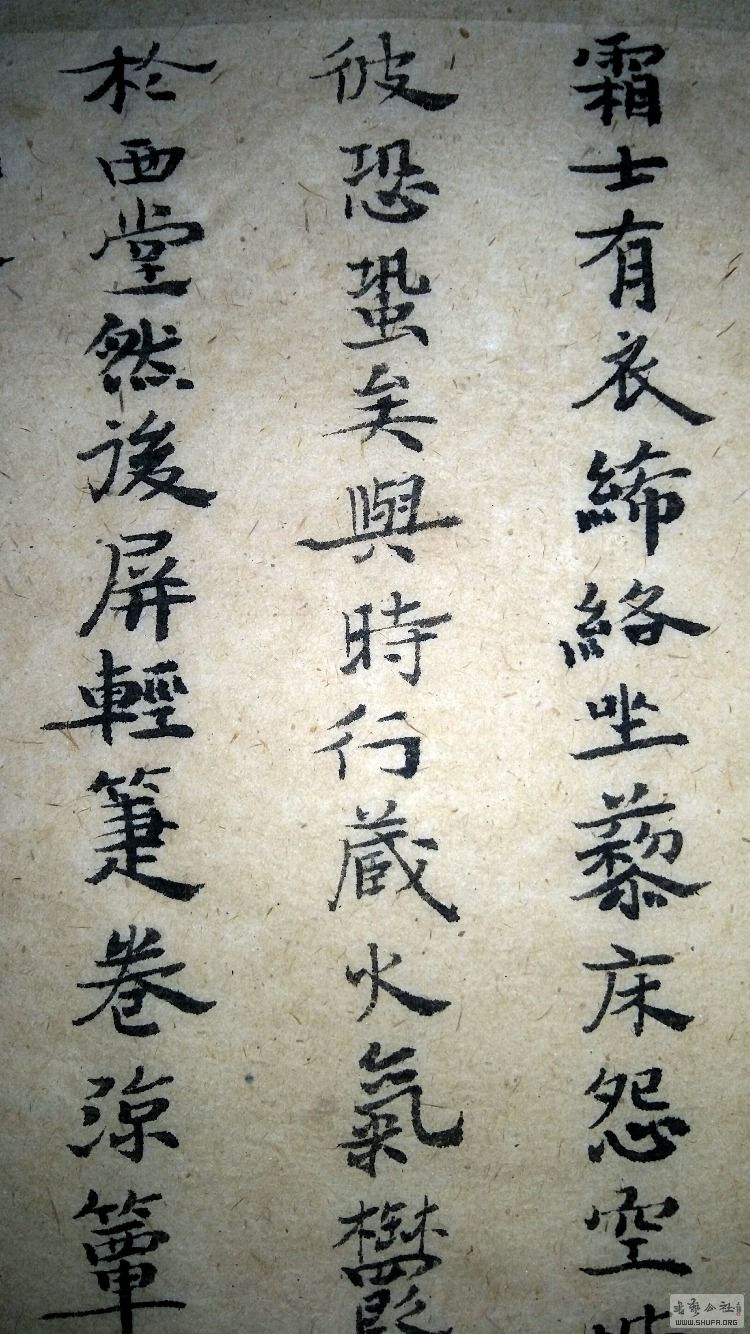 霜士有衣絺綌坐藜床怨空
彼恐蛩矣與時行藏火氣欝
於西堂然後屏輕箑卷涼簟
WWW.SHUFA.ORG